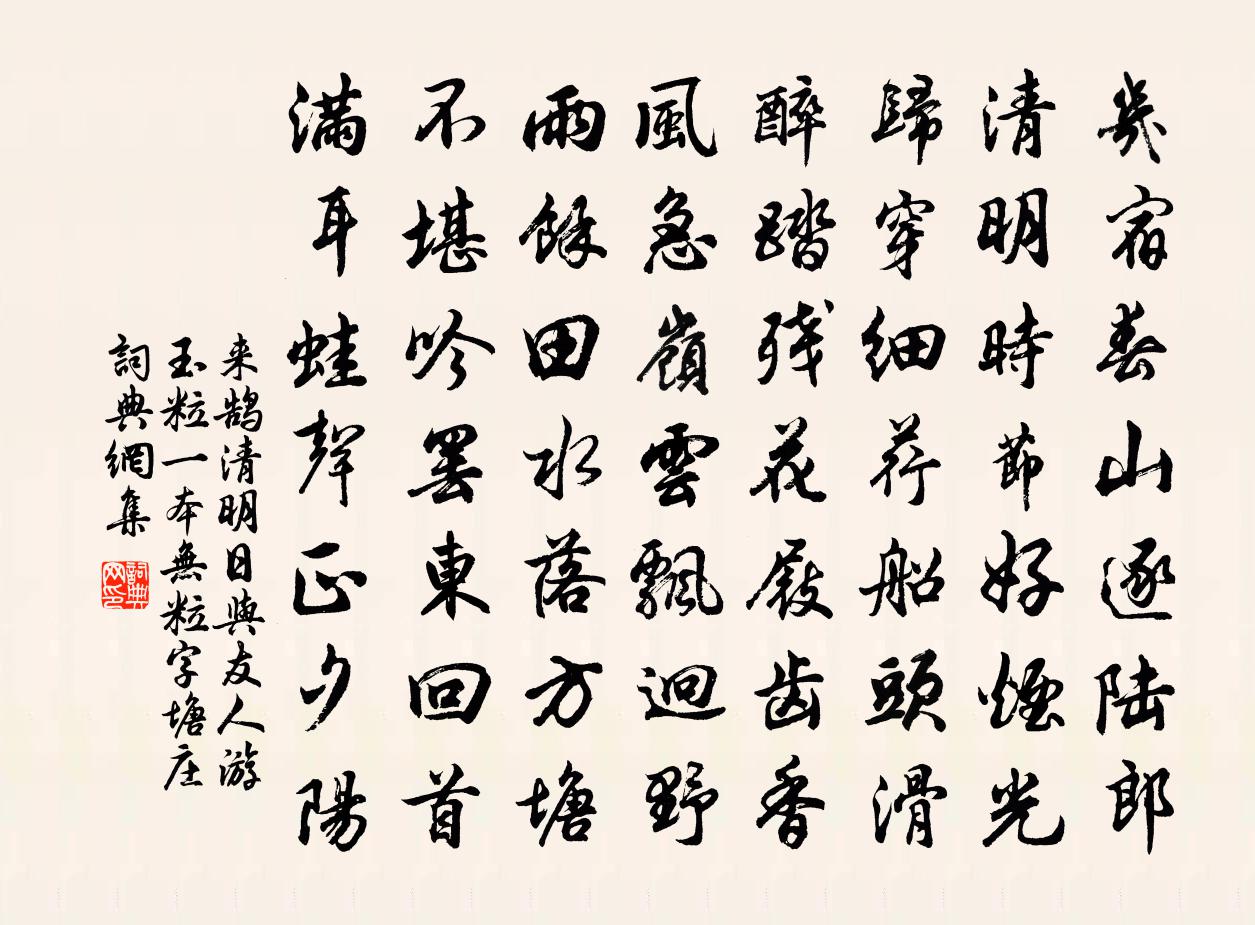 幾宿春山逐陆郎
清明時節好煙光
歸穿細荇船頭滑
醉踏残花屐齿香
風急嶺雲飄迥野
雨餘田水落方塘
不堪吟罢東回首
满耳蛙聲正夕陽
来鹄清明日與友人游
玉粒一本無粒字塘庄
詞典網集
詞典网印